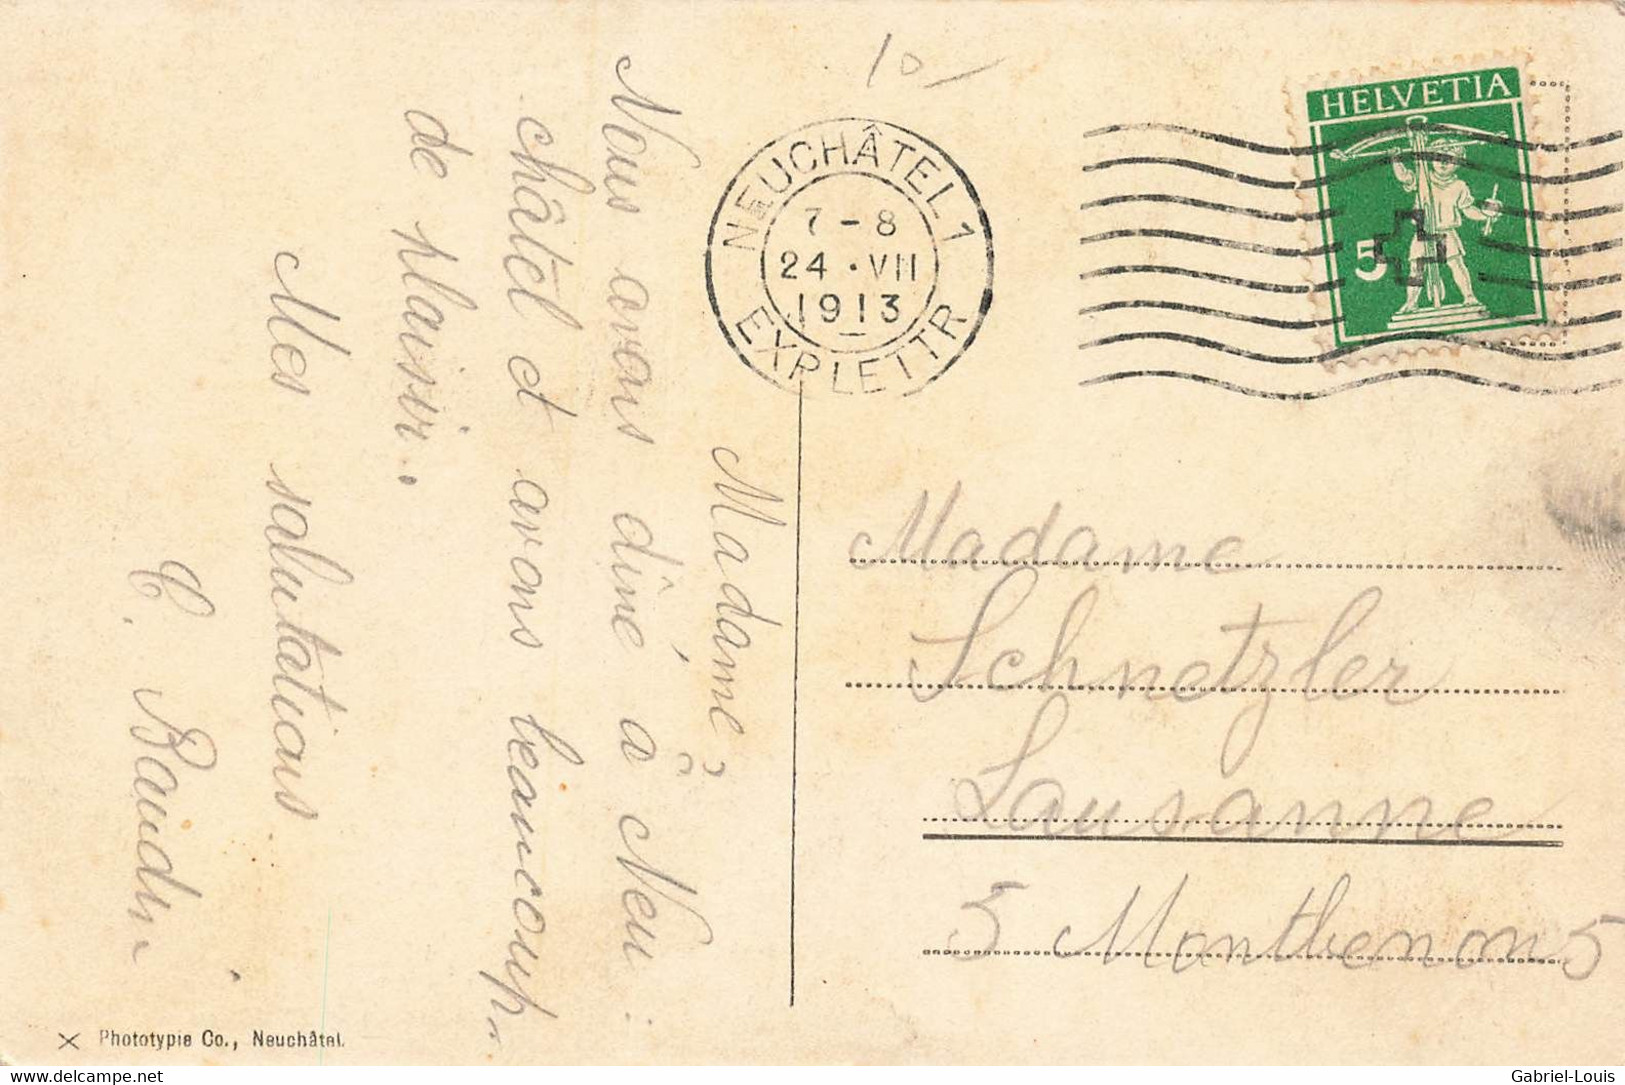 10 –
HELVETIA
5
NEUCHÂTEL 1
7 – 8
24 · VII
1913
EXP LETTR
Madame,
Nous avons dîné à Neu:
châtel et avons beaucoup
de plaisir.
Mes salutations
C. Baudin
Madame
Schnetzler
Lausanne
5 Montbenon 5
X Phototypie Co., Neuchâtel.
www.delcampe.net
Gabriel-Louis